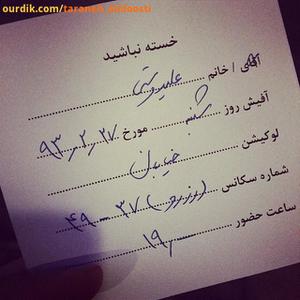 ourdik.com/taraneh_alidoosti
خسته نباشید
آقای / خانم علیدوستی
آفیش روز شنبه مورخ ۹۳,۲,۲۷
لوکیشن خیابان
شماره سکانس (روز رو) ۳۷ - ۴۹
ساعت حضور ۱۹